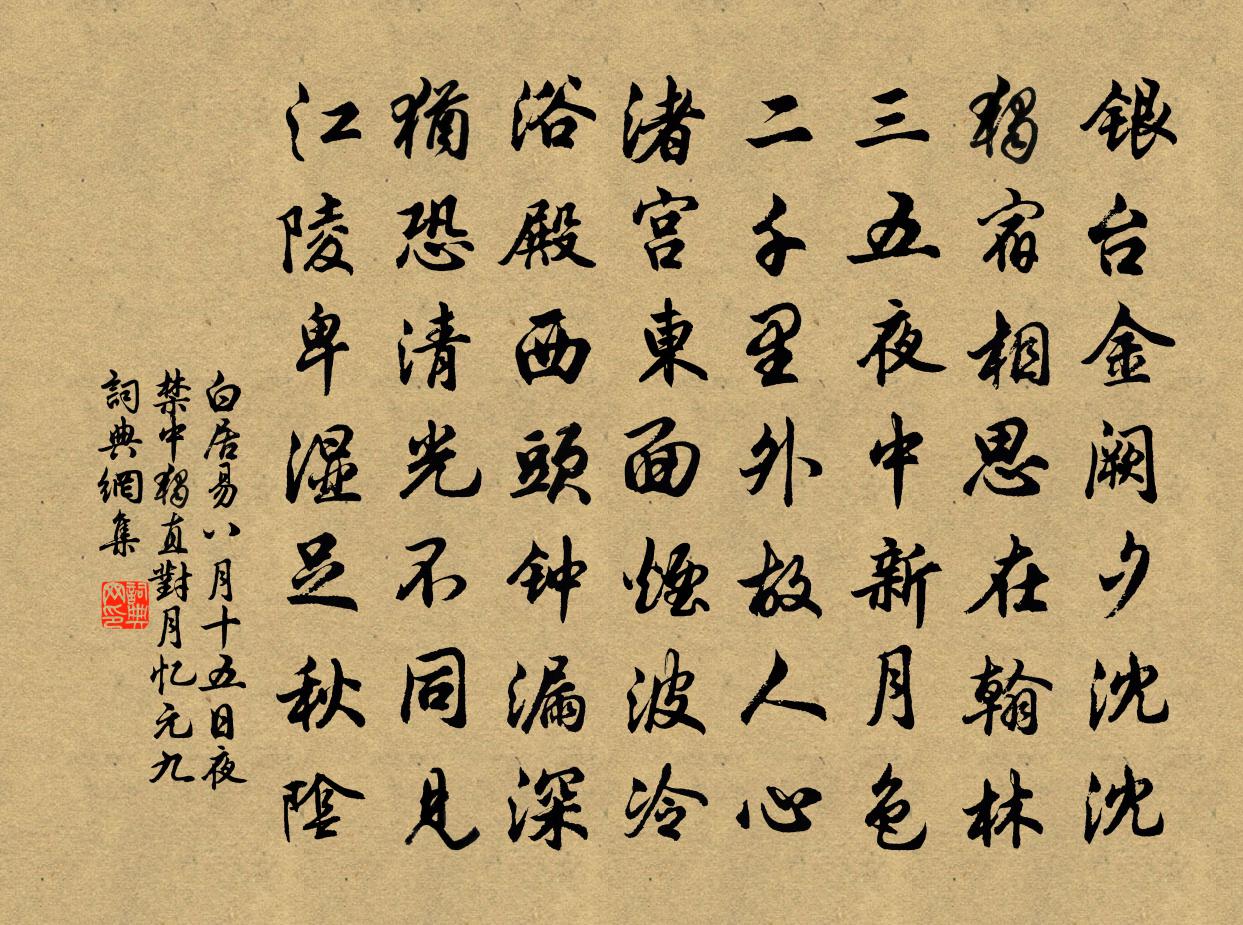 銀台金阙夕沈沈
獨宿相思在翰林
三五夜中新月色
二千里外故人心
渚宫東面煙波冷
浴殿西頭钟漏深
猶恐清光不同見
江陵卑湿足秋陰
白居易八月十五日夜
禁中獨直對月忆元九
詞典網集
詞典网印